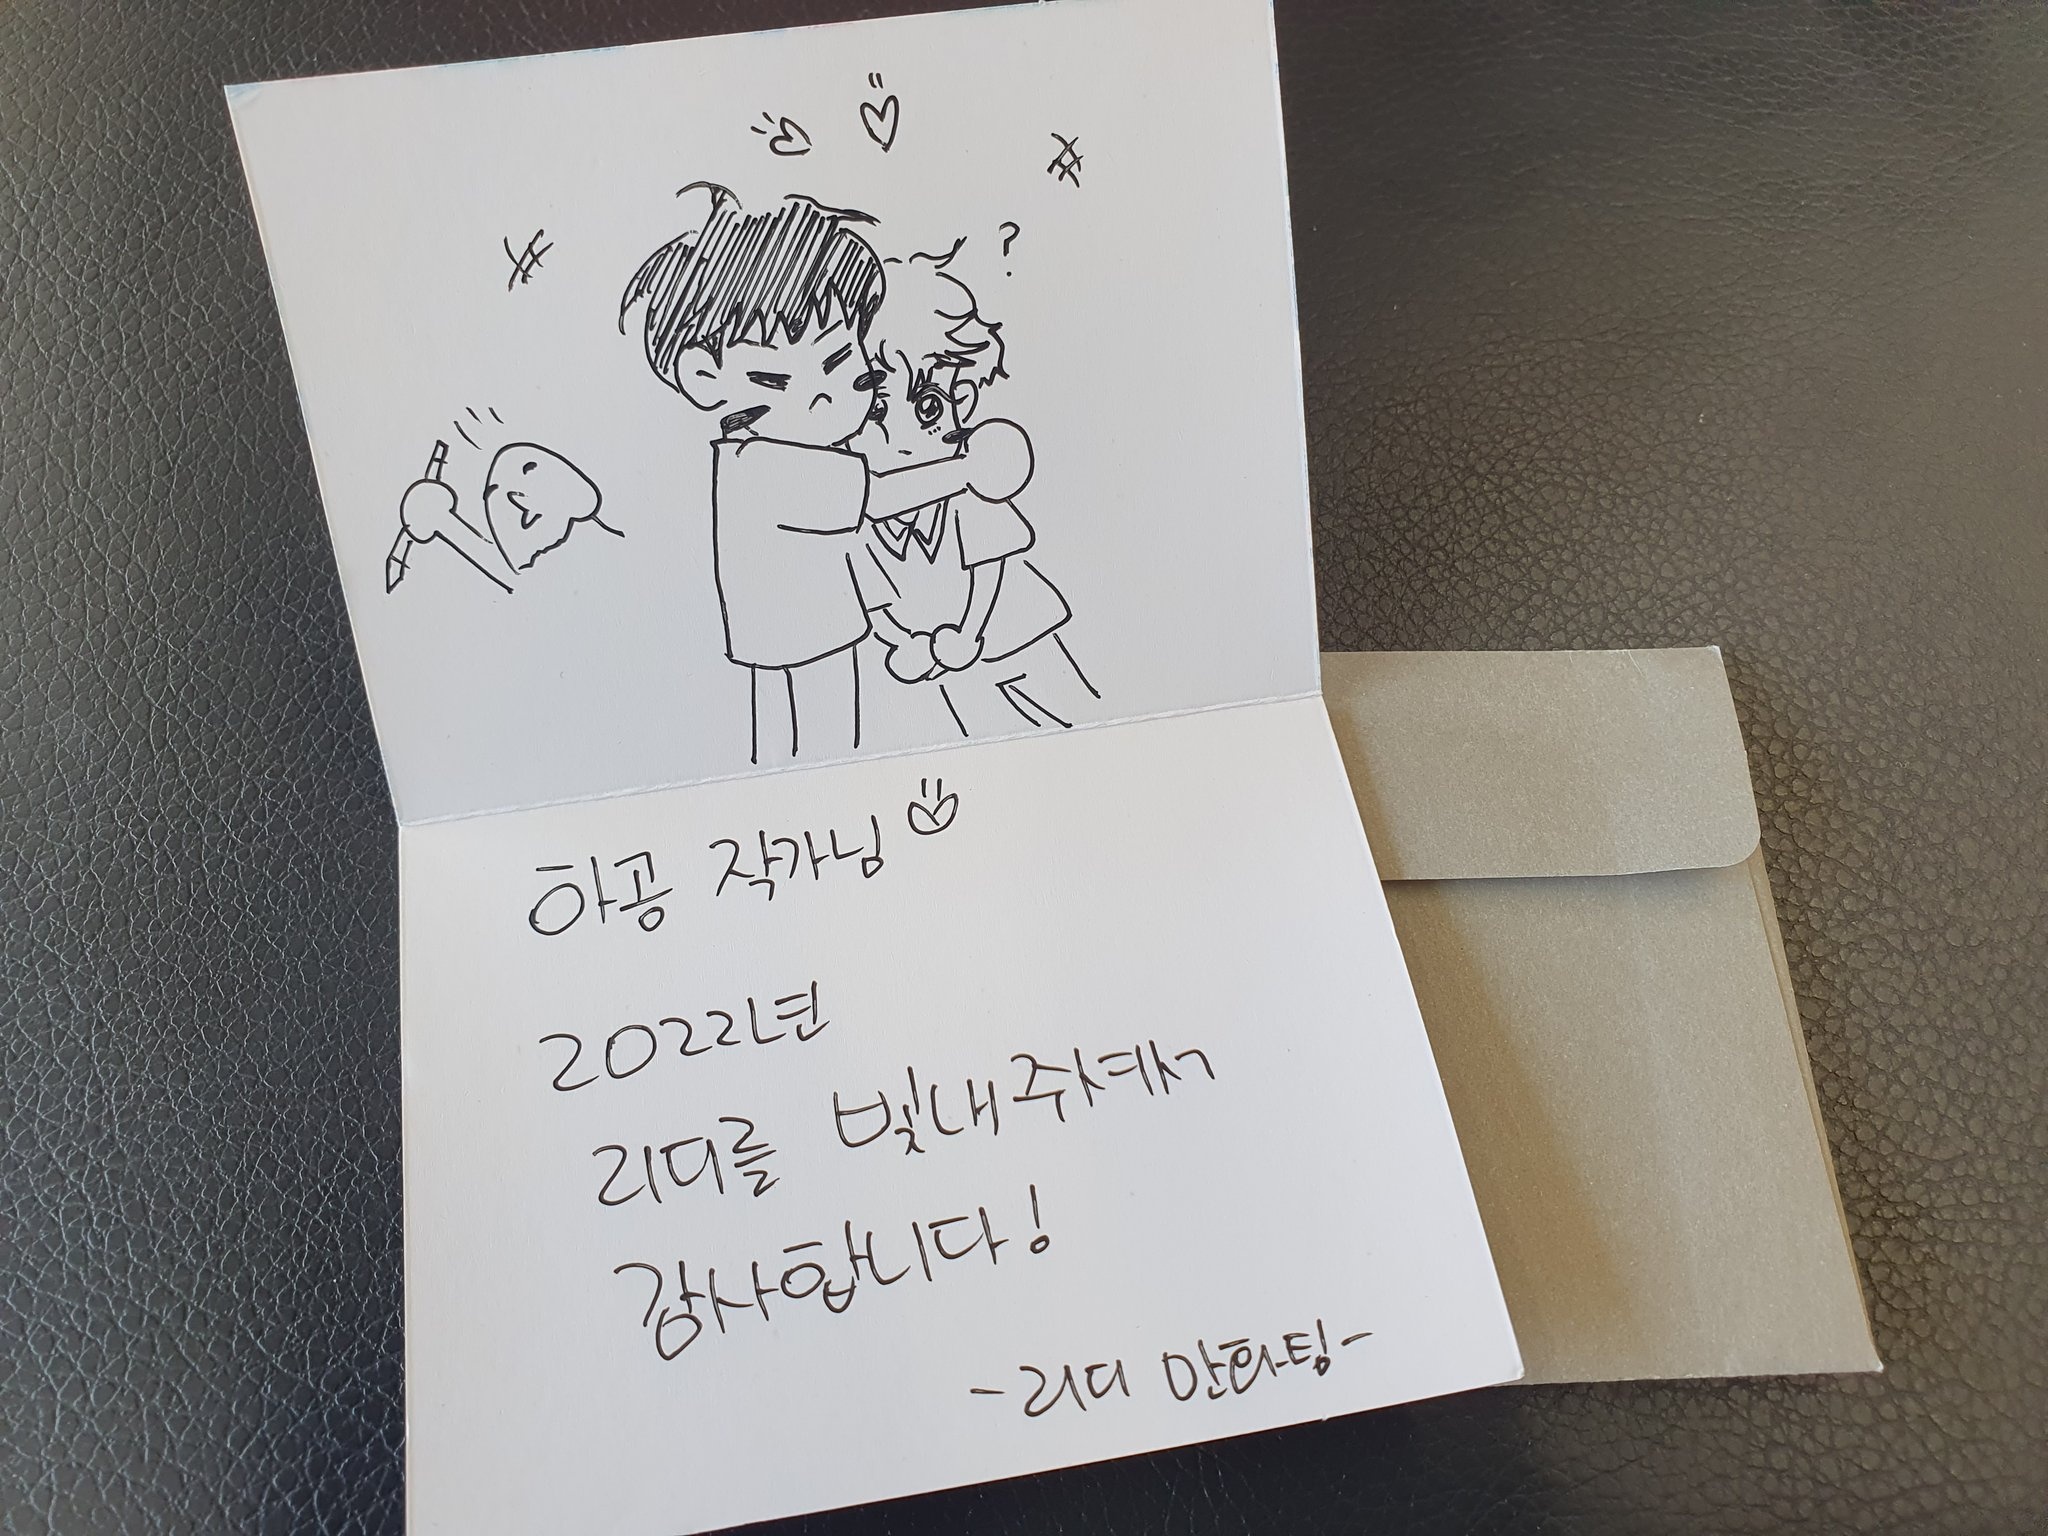 ?
하공 작가님
2022년
리디를 빛내주셔서
감사합니다!
-리디 만화팀-